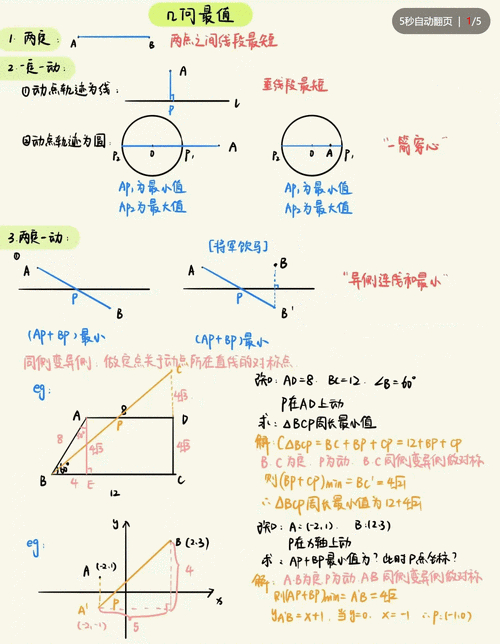 几何最值
5秒自动翻页 | 1/5
1. 两定: A B 两点之间线段最短
2. 一定一动:
①动点轨迹为线: A P l 垂线段最短
②动点轨迹为圆: P₂ O P₁ A P₂ O A P₁ "一箭穿心"
AP₁为最小值 AP₁为最小值
AP₂为最大值 AP₂为最大值
3. 两定一动: [将军饮马]
① A P B A P B B' "异侧连线和最小"
(AP+BP)最小 (AP+BP)最小
同侧变异侧: 做定点关于动点所在直线的对称点
eg: A 8 P D C' 4√3
8 30° 4√3 4√3
B 60° 4 E C
12
已知: AD=8. BC=12. ∠B=60°
P在AD上动
求: △BCP周长最小值
解: C△BCP=BC+BP+CP=12+BP+CP
B.C为定. P为动. B.C同侧变异侧做对称
则(BP+CP)min=BC'=4√21
∴△BCP周长最小值为12+4√21
eg: y B (2.3)
A (-2.1) 4
A' P x
(-2,-1) 5
已知: A:(-2,1). B:(2.3)
P在x轴上动
求: AP+BP最小值为? 此时P点坐标?
解: A.B为定P为动 A.B同侧变异侧做对称
则(AP+BP)min=A'B=4√2
yA'B=x+1. 当y=0. x=-1 ∴P:(-1,0)